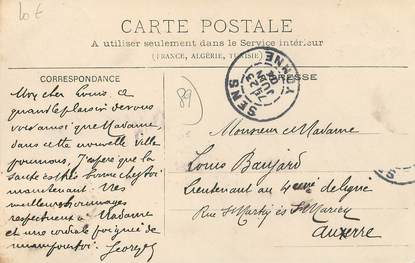 10 €
CARTE POSTALE
A utiliser seulement dans le Service intérieur
(FRANCE, ALGÉRIE, TUNISIE)
CORRESPONDANCE
ADRESSE
SENS
YONNE
89
Mon cher Louis, a
quand le plaisir de vous
voir ainsi que Madame,
dans cette nouvelle ville
pour nous, J'espère que la
santé est bonne chez toi
maintenant. Mes
meilleurs hommages
respectueux à Madame
et une cordiale poignée de
main pour toi. Georges
Monsieur et Madame
Louis Baujard
Lieutenant au 4eme de ligne
Rue St Martin
Auxerre